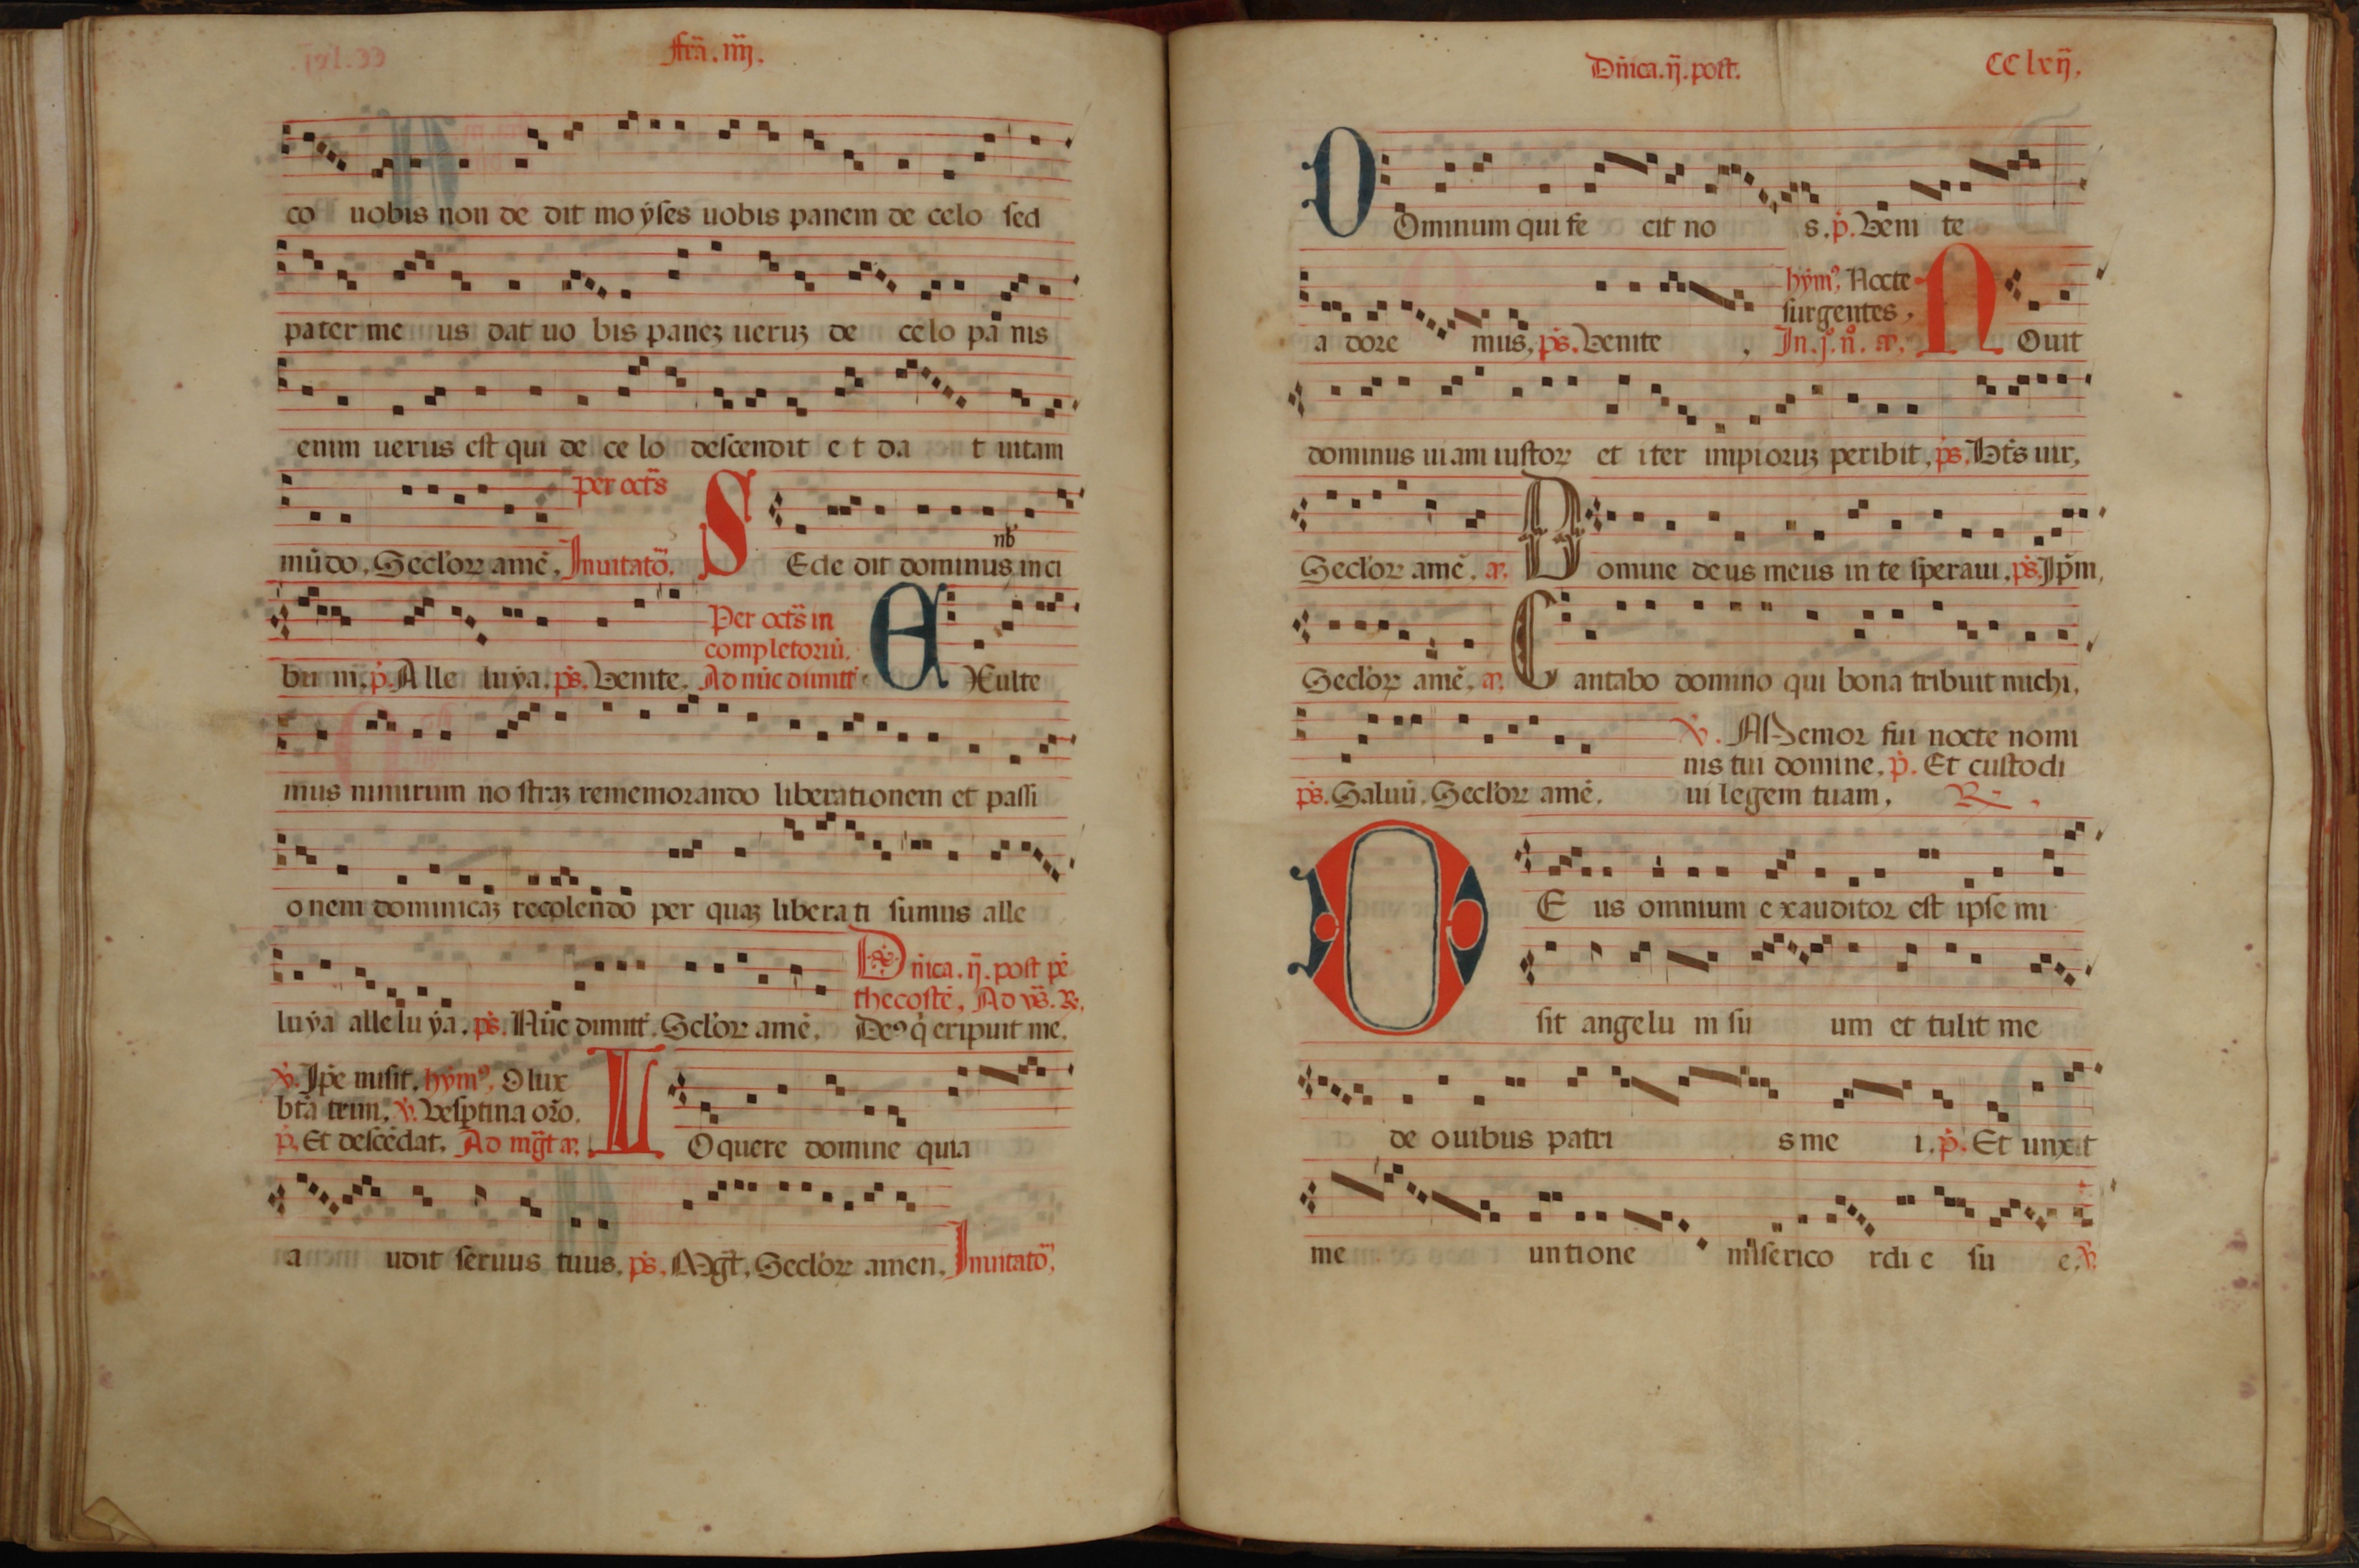 fr̃a. iiij.
co uobis non de dit moẏses uobis panem de celo sed
pater me us dat uo bis paneꝫ ueruꝫ de celo pa nis
enim uerus est qui de ce lo descendit e t da t uitam
per oct̃s
mũdo. Seclor̃ꝝ amẽ. Inuitatõ. S Ecle dit dominus in ci
nb̃
bum. p̃. Alle luẏa. ps̃. Venite.
Per oct̃s in
completoriũ.
Ad nũc dimitt̃. EXulte
mus nimirum no straꝫ rememorando liberationem et passi
onem dominicaꝫ recolendo per quaꝫ libera ti sumus alle
luẏa alle lu ẏa. ps̃. Nũc dimitt̃. Sclor̃ꝝ amẽ.
Dñica. ij. post pẽ
thecostẽ. Ad vs̃. R̃.
De9 q̇ eripuit me.
v̇. Ip̃e misit. hẏm9. O lux
bt̃a trini. v̇. Vesptina oro.
p̃. Et descẽdat. Ad mg̃t añ. L Oquere domine quia
a udit seruus tuus. ps̃. Mg̃t. Seclor̃ꝝ amen. Inuitatõ.
Dñica. ij. post.
CC lxij.
DOminum qui fe cit no s. p̃. Veni te
a dore mus. ps̃. Venite.
hẏm9. Nocte
surgentes.
In. j̊. n̊. añ. NOuit
dominus uiam iustoꝝ et iter impioruꝫ peribit. ps̃. Bt̃s uir.
Seclor̃ꝝ amẽ. añ. Domine deus meus in te speraui. ps̃. Ip̃m.
Seclor̃ꝝ amẽ. añ. Cantabo domino qui bona tribuit michi.
ps̃. Saluũ. Seclor̃ꝝ amẽ.
v̇. Memor fui nocte nomi
nis tui domine. p̃. Et custodi
ui legem tuam. R̃.
DE us omnium exauditor est ipse mi
sit angelu m su um et tulit me
de ouibus patri s me i. p̃. Et unxit
me untione miserico rdi e su e. v̇.